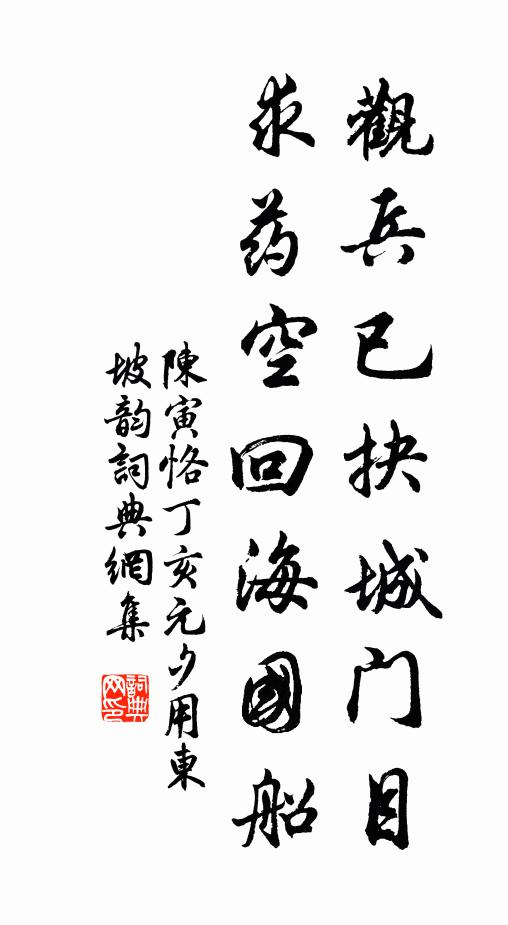 觀兵已抉城門目
求药空回海國船
陳寅恪丁亥元夕用東
坡韵詞典網集
詞典网印